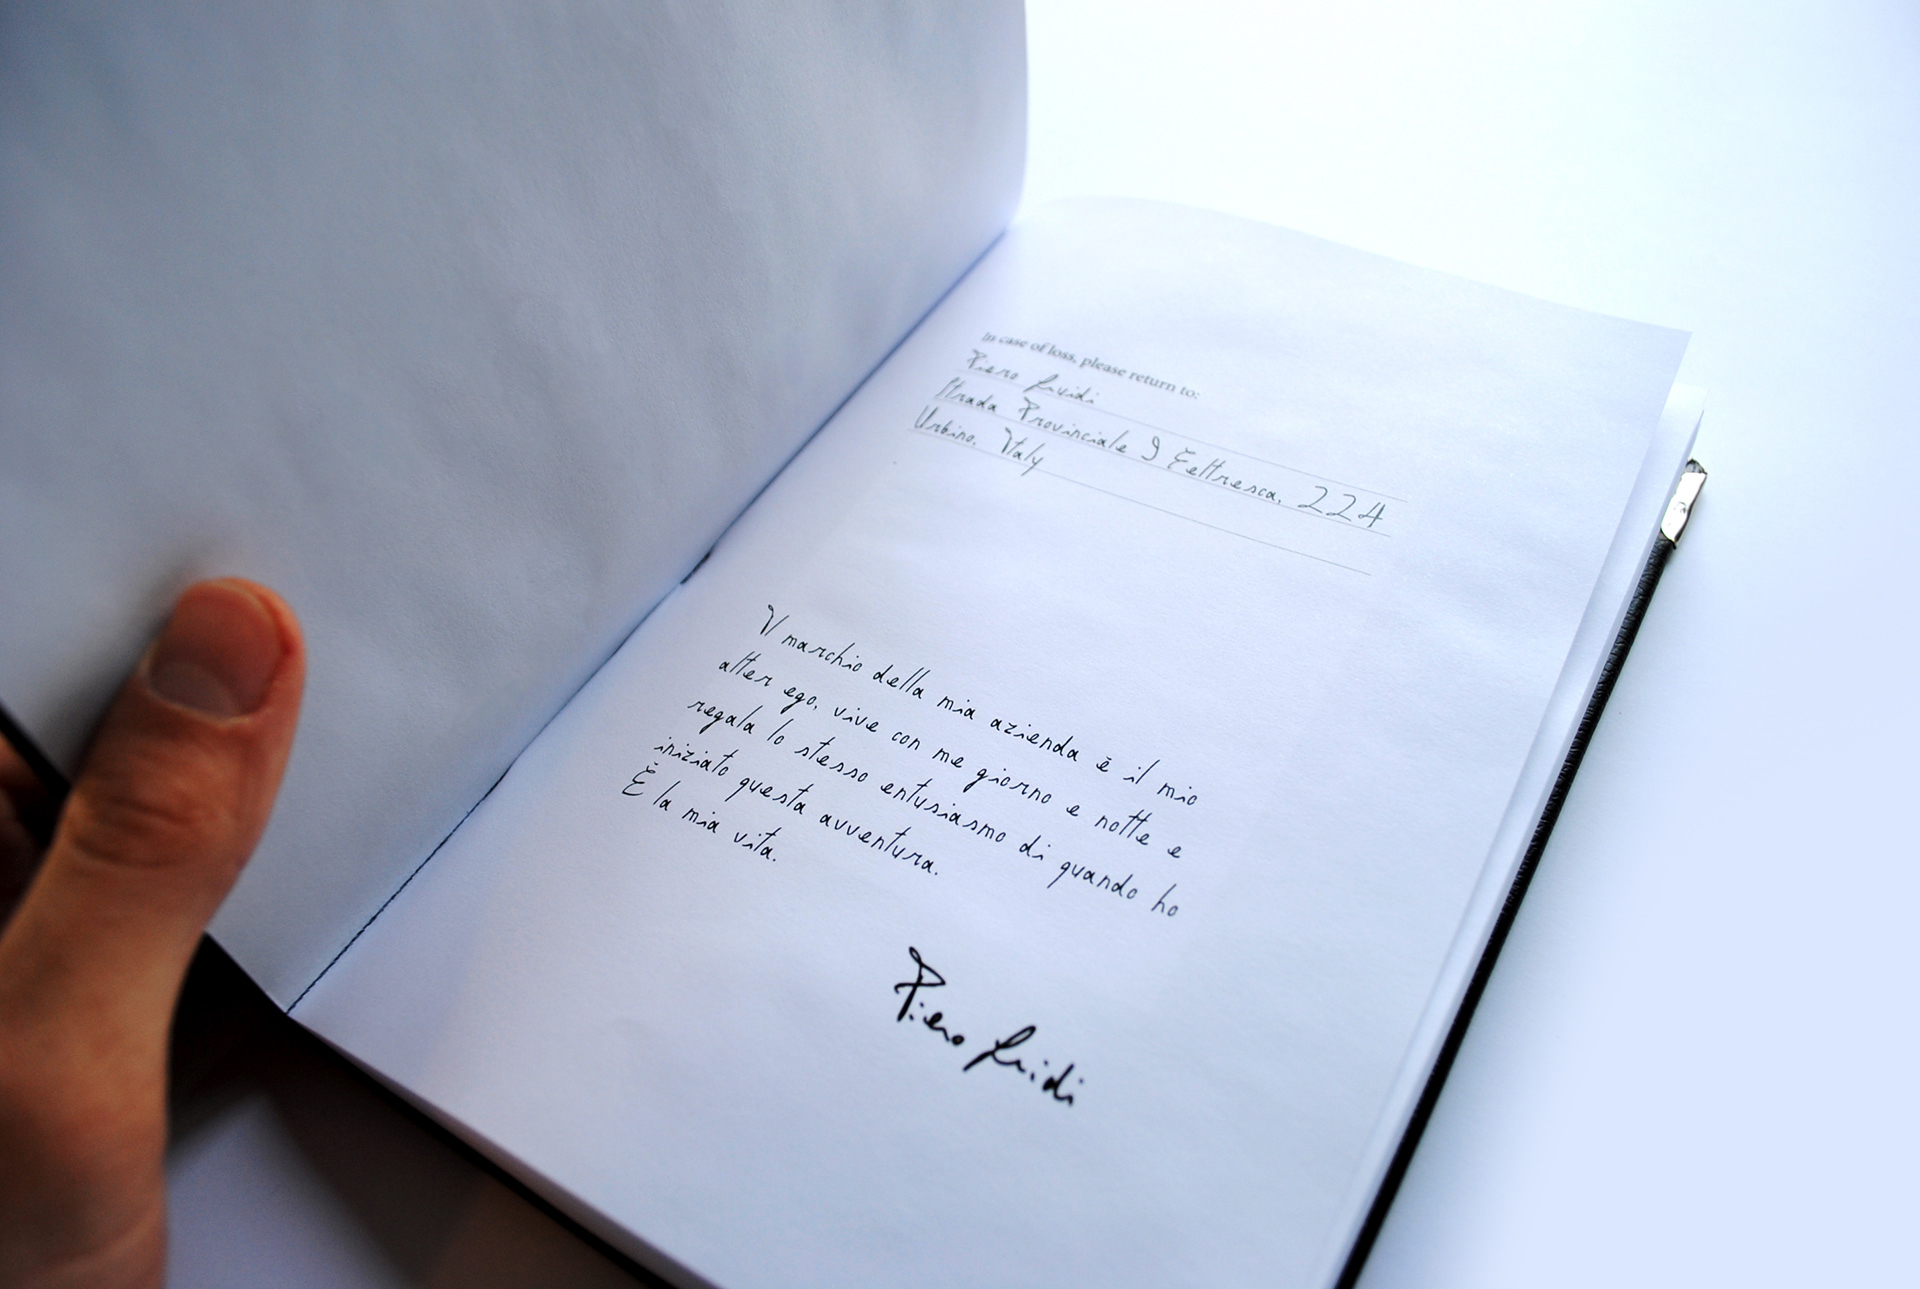 In case of loss, please return to:
Piero Guidi
Strada Provinciale 9 Feltresca, 224
Urbino, Italy
Il marchio della mia azienda è il mio
alter ego, vive con me giorno e notte e
regala lo stesso entusiasmo di quando ho
iniziato questa avventura.
È la mia vita.
Piero Guidi